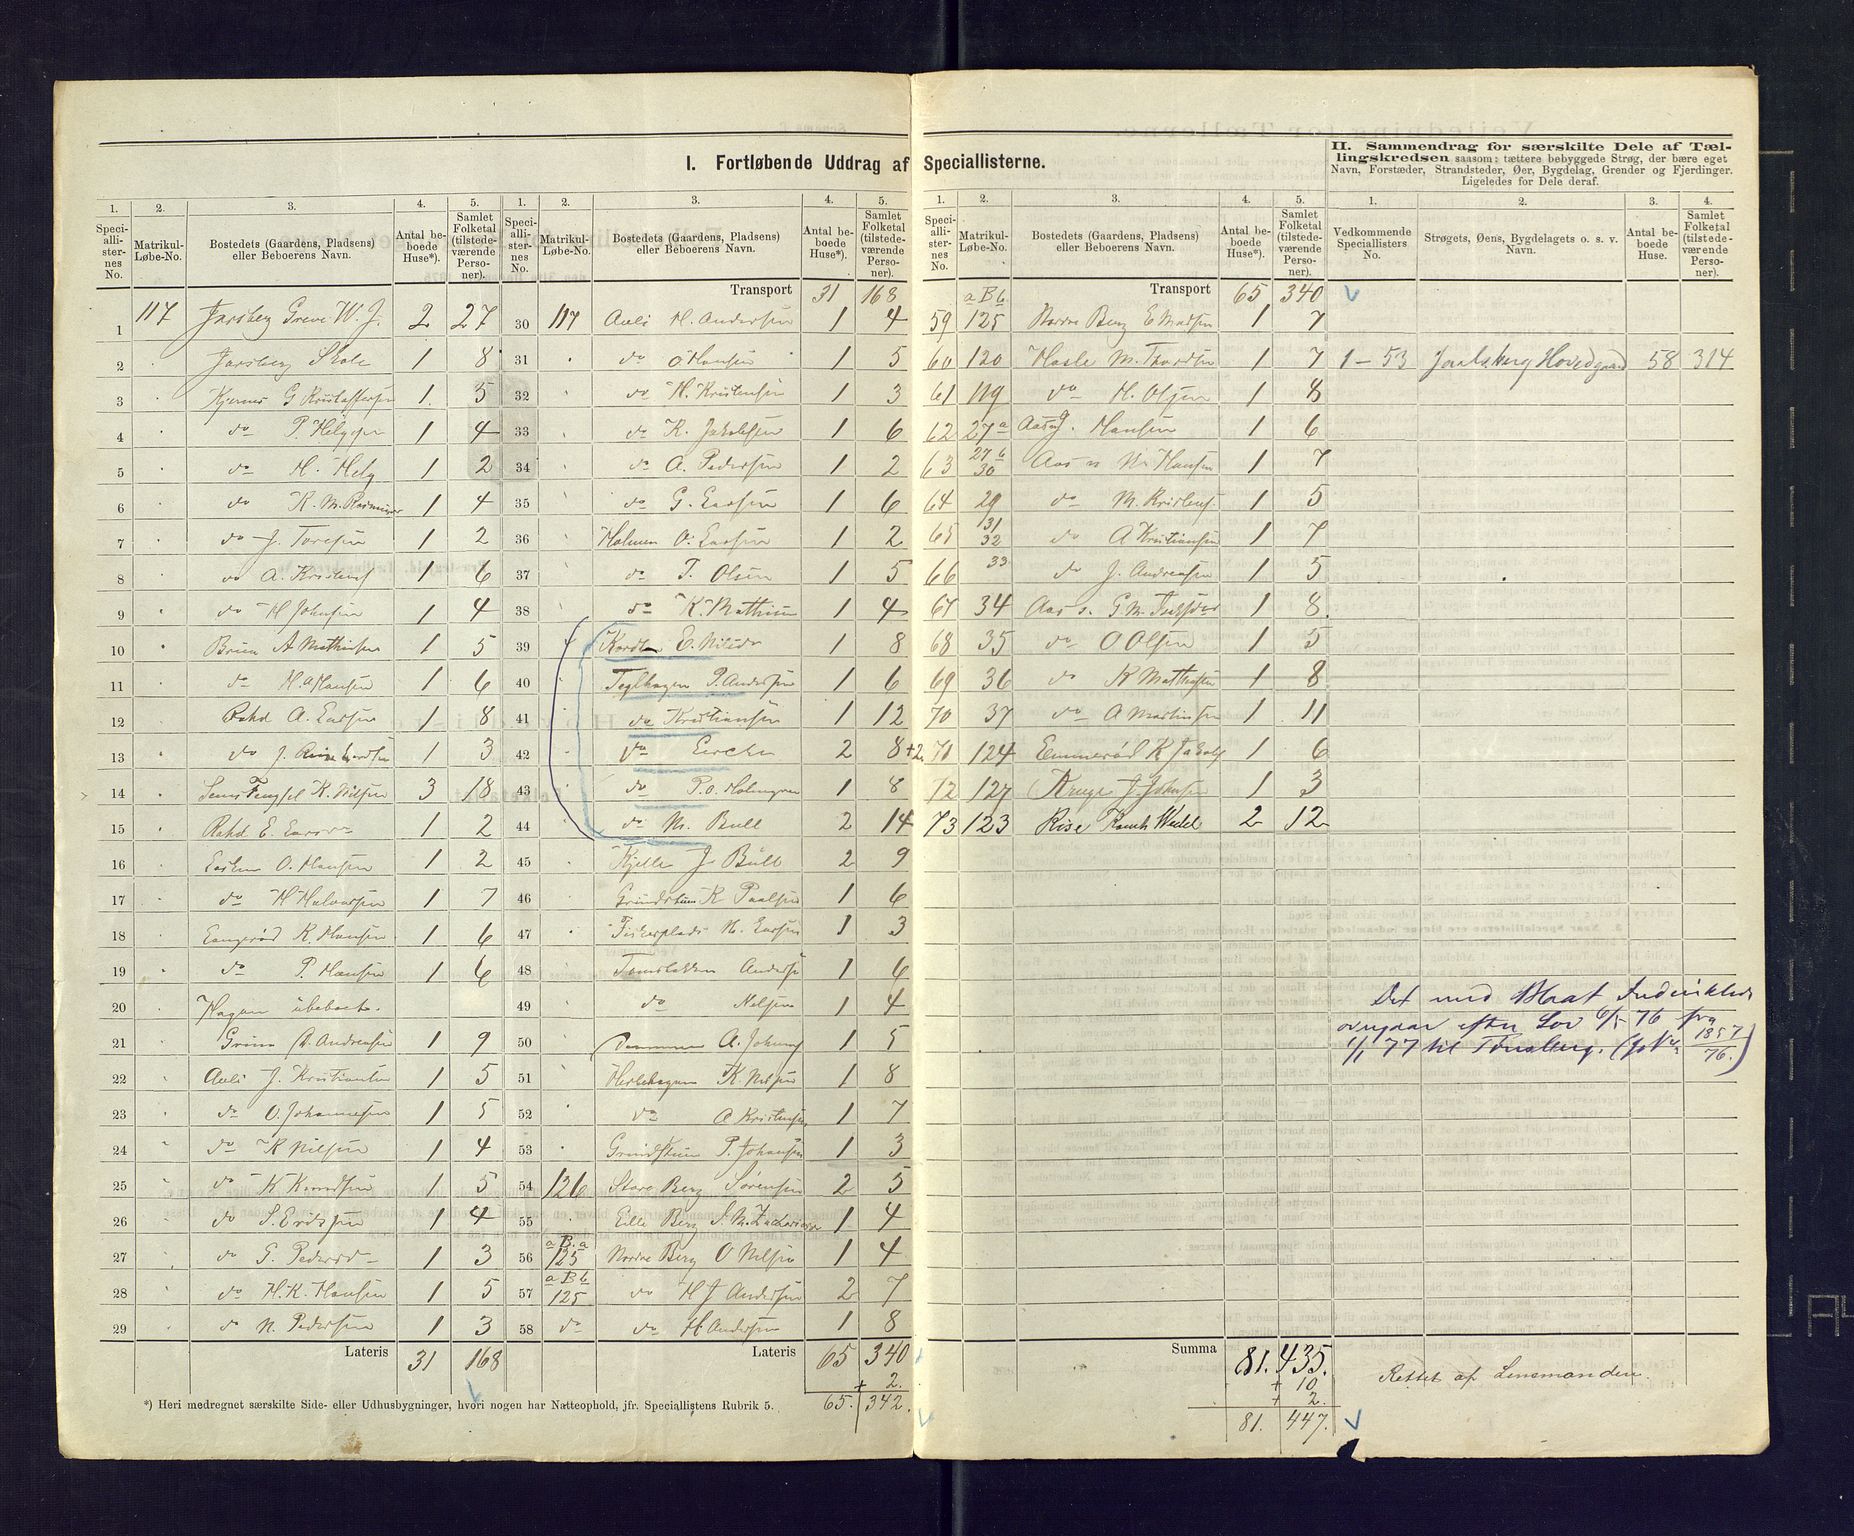 I. Fortløbende Uddrag af Speciallisterne.
1. 2. 3. 4. 5.
Speciallisternes No. Matrikul-Løbe-No. Bostedets (Gaardens, Pladsens) eller Beboerens Navn. Antal beboede Huse*). Samlet Folketal (tilstedeværende Personer).
1 117 Jarsberg Greve W. J. 2 27
2 Jarsberg Skole 1 8
3 Kjernes G Kristoffersen 1 5
4 do P. Helgesen 1 4
5 do H. Helg 1 2
6 do K. M. Rasmusen 1 4
7 do J. Toresen 1 2
8 do A. Kristens 1 6
9 do H Johnsen 1 4
10 A Mathisen 1 5
11 do H. Hansen 1 6
12 A. Larsen 1 8
13 do J. 1 3
14 K. Nilsen 3 18
15 E. 1 2
16 O. Hansen 1 2
17 do H Halvorsen 1 7
18 Langerød K. Hansen 1 6
19 do P. Hansen 1 6
20 Hagen ubeboet.
21 Andreasen 1 9
22 Auli J. Kristiansen 1 5
23 do O. Johannesen 1 5
24 do K Nilsen 1 4
25 do K Knudsen 1 5
26 do S. Eriksen 1 4
27 do G. Peders 1 3
28 do H. K. Hansen 1 5
29 do N. Pedersen 1 3
Lateris 31 168
*) Heri medregnet særskilte Side- eller Udhusbygninger, hvori nogen har Natteophold, jfr. Speciallistens Rubrik 5.
1. 2. 3. 4. 5.
Speciallisternes No. Matrikul-Løbe-No. Bostedets (Gaardens, Pladsens) eller Beboerens Navn. Antal beboede Huse*). Samlet Folketal (tilstedeværende Personer).
Transport 31 168
30 117 Auli H. Andersen 1 4
31 do O Hansen 1 5
32 do H. Kristensen 1 3
33 do K. Jakobsen 1 6
34 do A. Pedersen 1 2
35 do G. Larsen 1 6
36 Holmen O. Larsen 1 2
37 do T. Olsen 1 5
38 do K. Mathisen 1 4
39 E. Nilsdr 1 8
40 Teglhagen P. Andersen 1 6
41 do Kristiansen 1 12
42 do Lerche 2 8 +2
43 do P. O. Holmgren 1 8
44 do M. Bull 2 14
45 Kjelle J Bull 2 9
46 Grindstuen K Paulsen 1 6
47 Fiskerplads N. Larsen 1 3
48 Tomsbakken Anders 1 6
49 do Nilsen 1 4
50 A. Johans 1 5
51 Herlehagen K. Nilsen 1 8
52 do A Kristensen 1 7
53 Grindstuen P. Johansen 1 3
54 126 Store Berg Sørensen 2 5
55 Lille Berg S. M. Zachariasen 1 4
56 a B. a 125 Nordre Berg O Nilsen 1 4
57 a B b 125 do H J Andersen 2 7
58 do do H Andersen 1 8
Lateris 65 340
+ 2.
65. 342.
1. 2. 3. 4. 5.
Speciallisternes No. Matrikul-Løbe-No. Bostedets (Gaardens, Pladsens) eller Beboerens Navn. Antal beboede Huse*). Samlet Folketal (tilstedeværende Personer).
Transport 65 340
59 a B b 125 Nordre Berg E Madsen 1 7
60 120 Hasle M. Thordsen 1 7
61 119 do H. Olsen 1 8
62 27 a Aas J. Hansen 1 6
63 27 b 30 Aas n M. Hansen 1 7
64 29 do M. Kristens 1 5
65 31 32 do A Kristiansen 1 7
66 33 do J. Andreasen 1 5
67 34 Aas s. G M. 1 8
68 35 do O Olsen 1 5
69 36 do K Mathisen 1 8
70 37 do A Martinsen 1 11
71 124 Emmerød K Jakobs 1 6
72 127 J. Johnsen 1 3
73 123 Rise Wedel 2 12
Summa 81. 435.
+ 10
+ 2.
81. 447.
II. Sammendrag for særskilte Dele af Tællingskredsen saasom: tættere bebyggede Strøg, der bære eget Navn, Forstæder, Strandsteder, Øer, Bygdelag, Grender og Fjerdinger. Ligeledes for Dele deraf.
1. 2. 3. 4.
Vedkommende Speciallisters No. Strøgets, Øens, Bygdelagets o. s. v. Navn. Antal beboede Huse. Samlet Folketal (tilstedeværende Personer).
1 – 53 Jarlsberg Hovedgaard 58 314
Det med Blaat Indcirklede
overgaar efter Lov 6/5 76 fra
1/1 77 til Tønsberg. (jo No 1857/76.)
Rettet af Lensmanden.